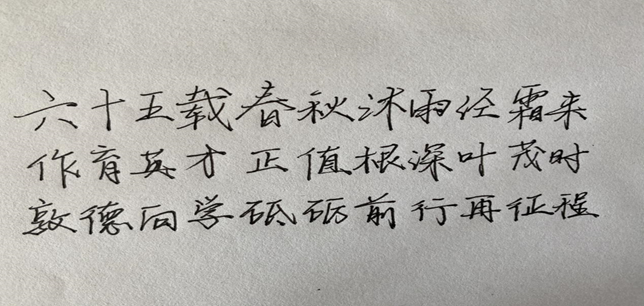 六十五载春秋沐雨经霜来
作育英才 正值根深叶茂时
敦德向学砥砺前行再征程